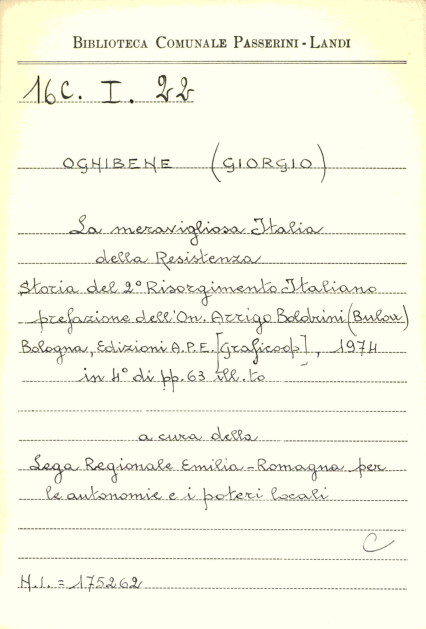 BIBLIOTECA COMUNALE PASSERINI - LANDI
16C. I. 22
OGHIBENE (GIORGIO)
La meravigliosa Italia
della Resistenza
Storia del 2° Risorgimento Italiano
prefazione dell'On. Arrigo Boldrini (Bulow)
Bologna, Edizioni A.P.E. [Graficoop], 1974
in 4° di pp. 63 ill.to
a cura della
Lega Regionale Emilia-Romagna per
le autonomie e i poteri locali
C
N.I. = 175262